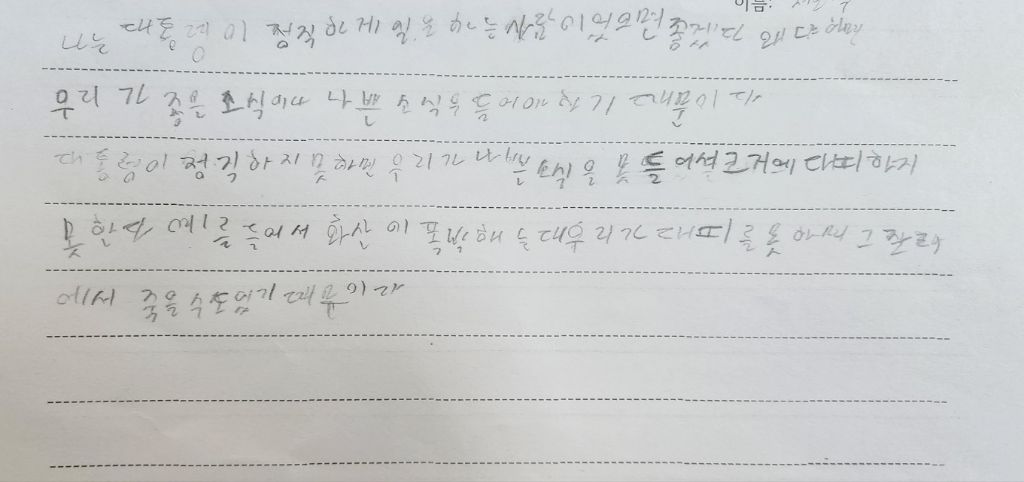 이름:
나는 대통령이 정직하게 일을 하는 사람이었으면 좋겠다 왜냐하면
우리가 좋은 소식이나 나쁜 소식을 들어야 하기 때문이다
대통령이 정직하지 못하면 우리가 나쁜 소식을 못 들어서 대피하지
못한다 예를 들어서 화산이 폭발해 는대 우리가 대피를 못 하서 그
에서 죽을 수도 있기 때문이다